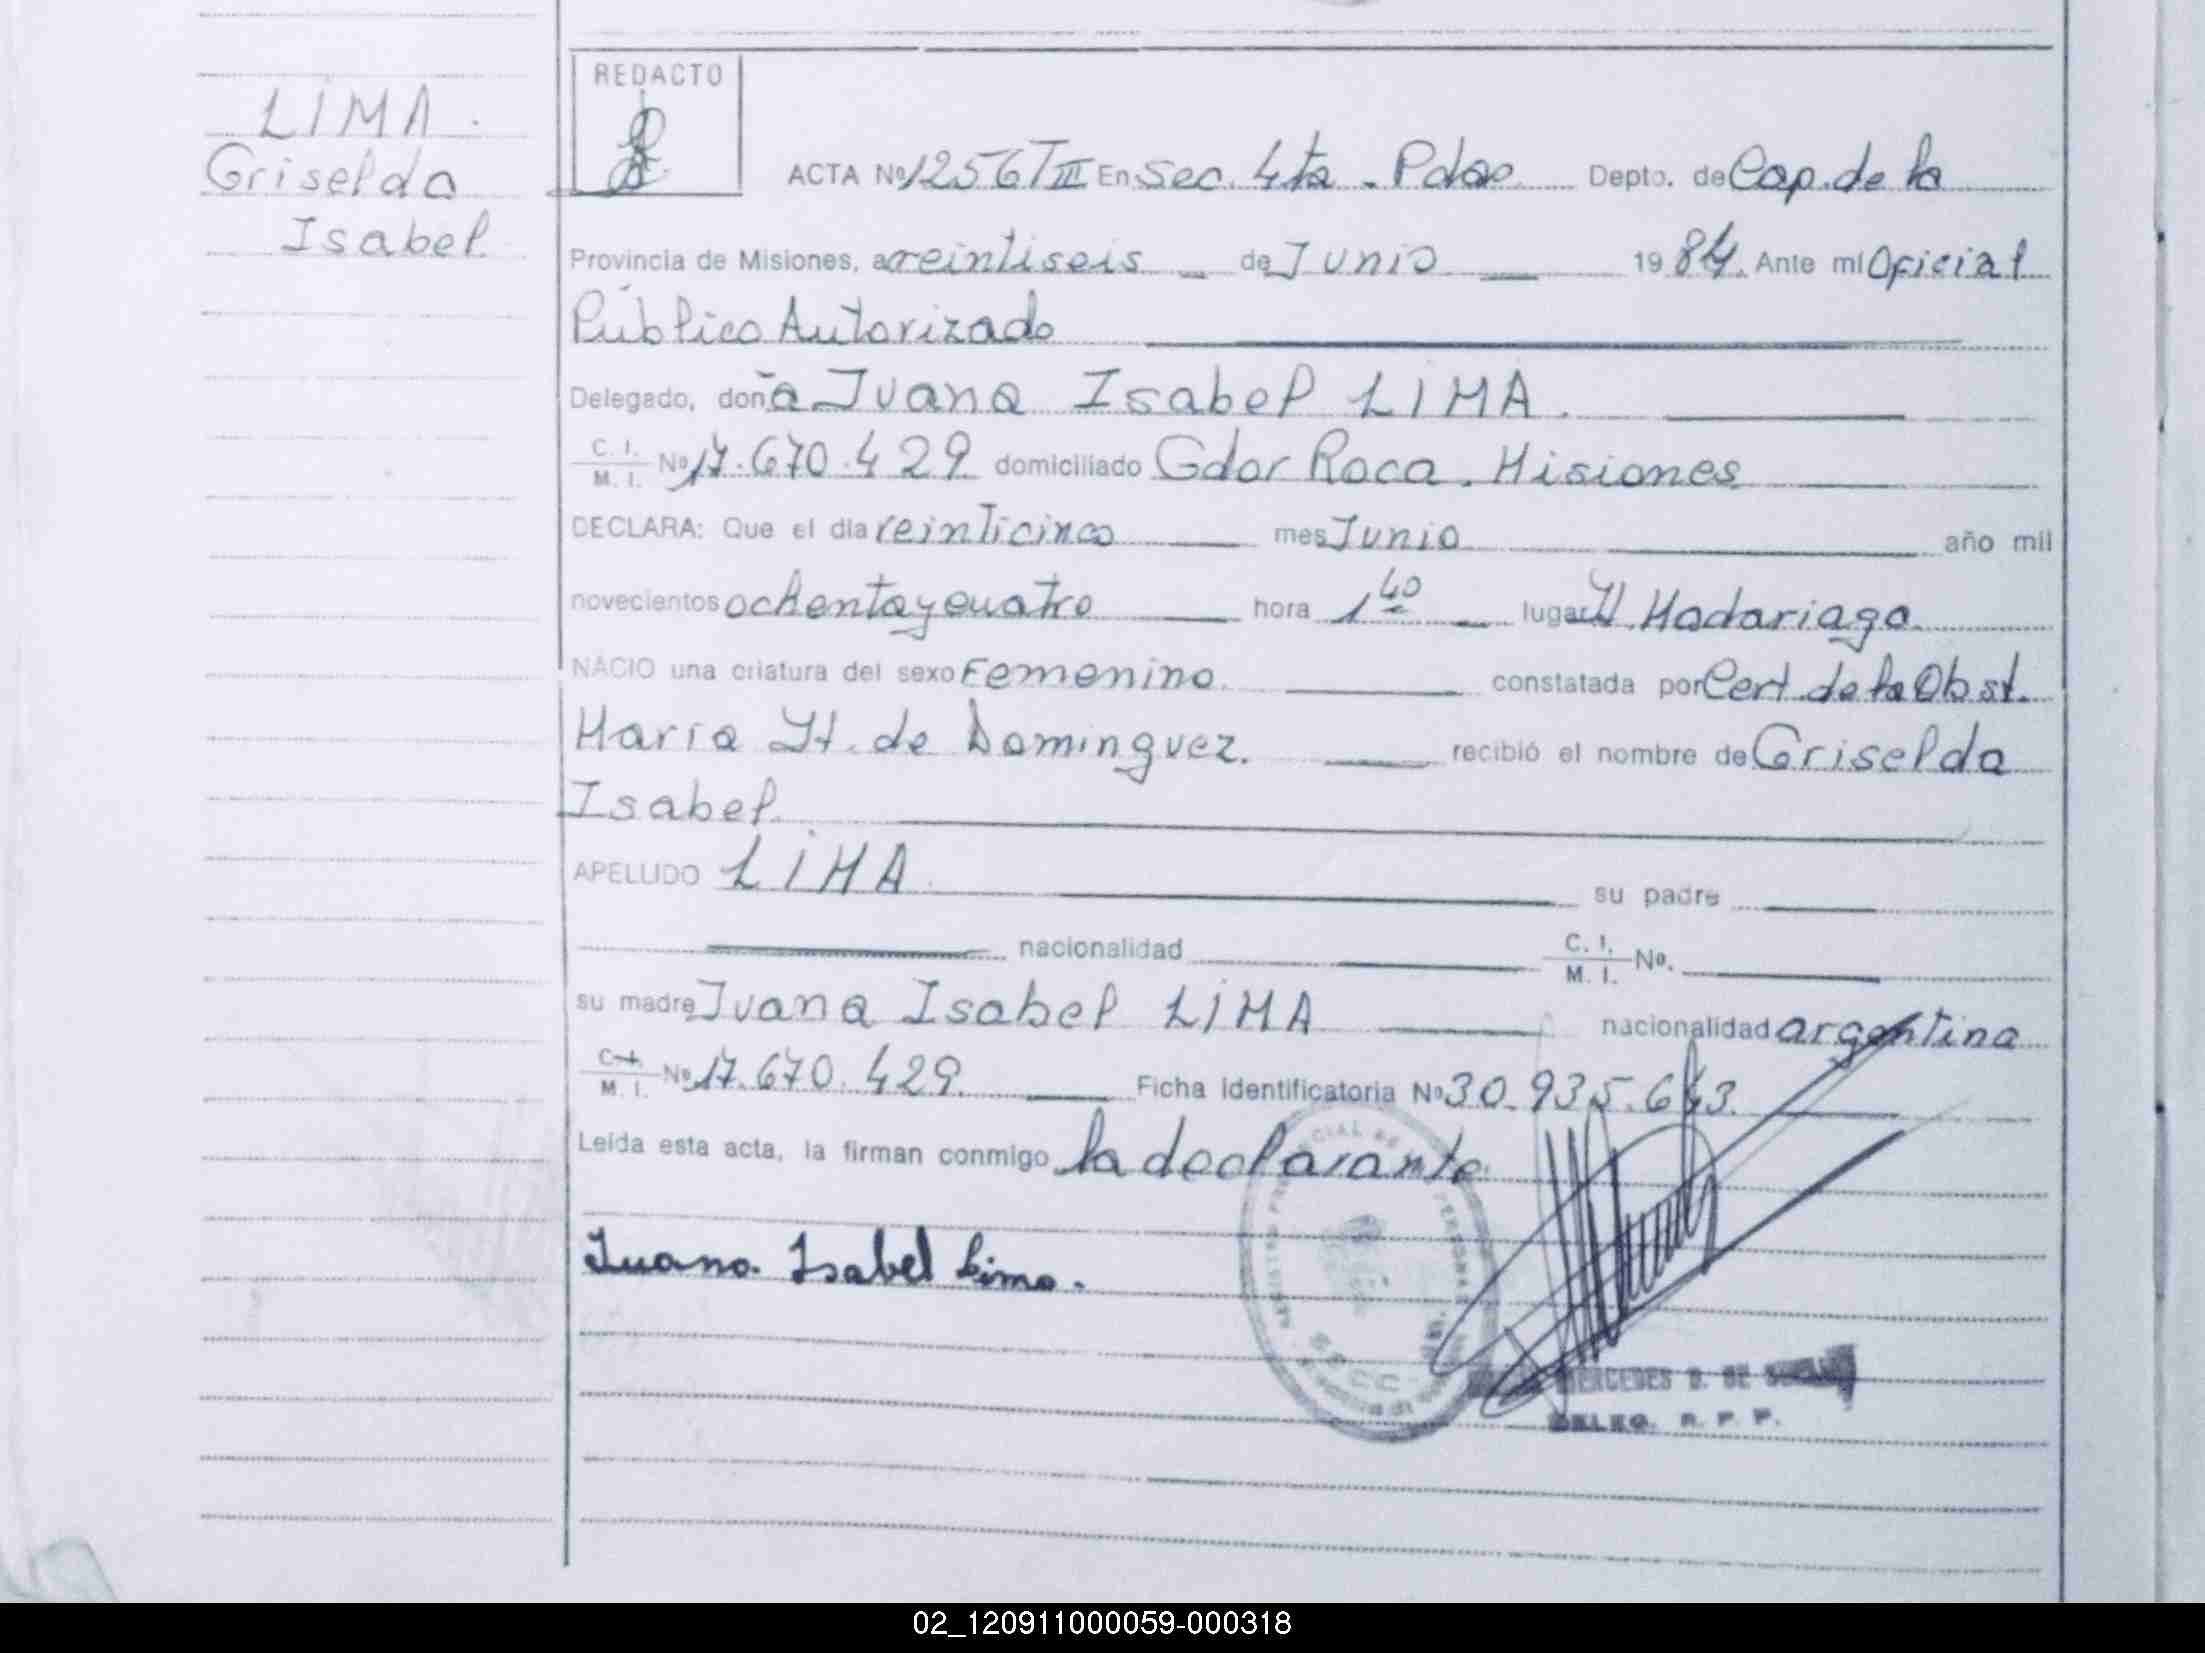 LIMA.
Griselda
Isabel.
REDACTO
ACTA Nº 1256 T III En Sec. 4ta - Pdas. Depto. de Cap. de la
Provincia de Misiones, a veintiseis de Junio 1984. Ante mí Oficial
Público Autorizado
Delegado, doña Juana Isabel LIMA.
C. I. M. I. Nº 17.670.429 domiciliado Gdor Roca. Misiones
DECLARA: Que el día veinticinco mes Junio año mil
novecientos ochenta y cuatro hora 1 40 lugar H. Madariaga.
NACIO una criatura del sexo Femenino. constatada por Cert. de la Obst.
María H. de Dominguez. recibió el nombre de Griselda
Isabel.
APELLIDO LIMA su padre
nacionalidad C. I. M. I. Nº.
su madre Juana Isabel LIMA nacionalidad argentina
C. I. M. I. Nº 17.670.429. Ficha Identificatoria Nº 30.935.643.
Leída esta acta, la firman conmigo la declarante.
Juana Isabel Lima.
MERCEDES B. DE
DELEG. R. P. P.
02_120911000059-000318